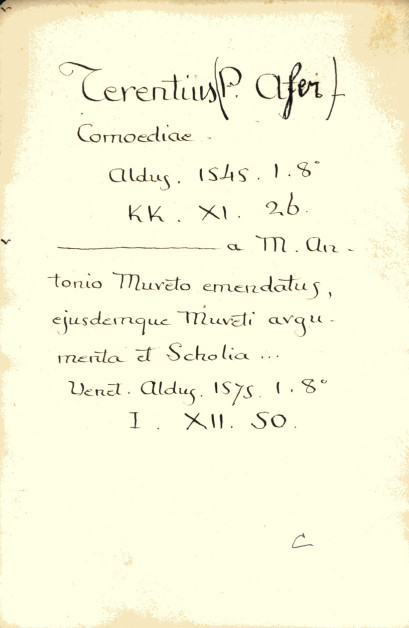 Terentius (P. Afer)
Comoediae.
Aldus. 1545. 1. 8°
KK. XI. 26.
——— a M. An-
tonio Mureto emendatus,
ejusdemque Mureti argu-
menta et Scholia ...
Venet. Aldus. 1575. 1. 8°
I. XII. 50.
C